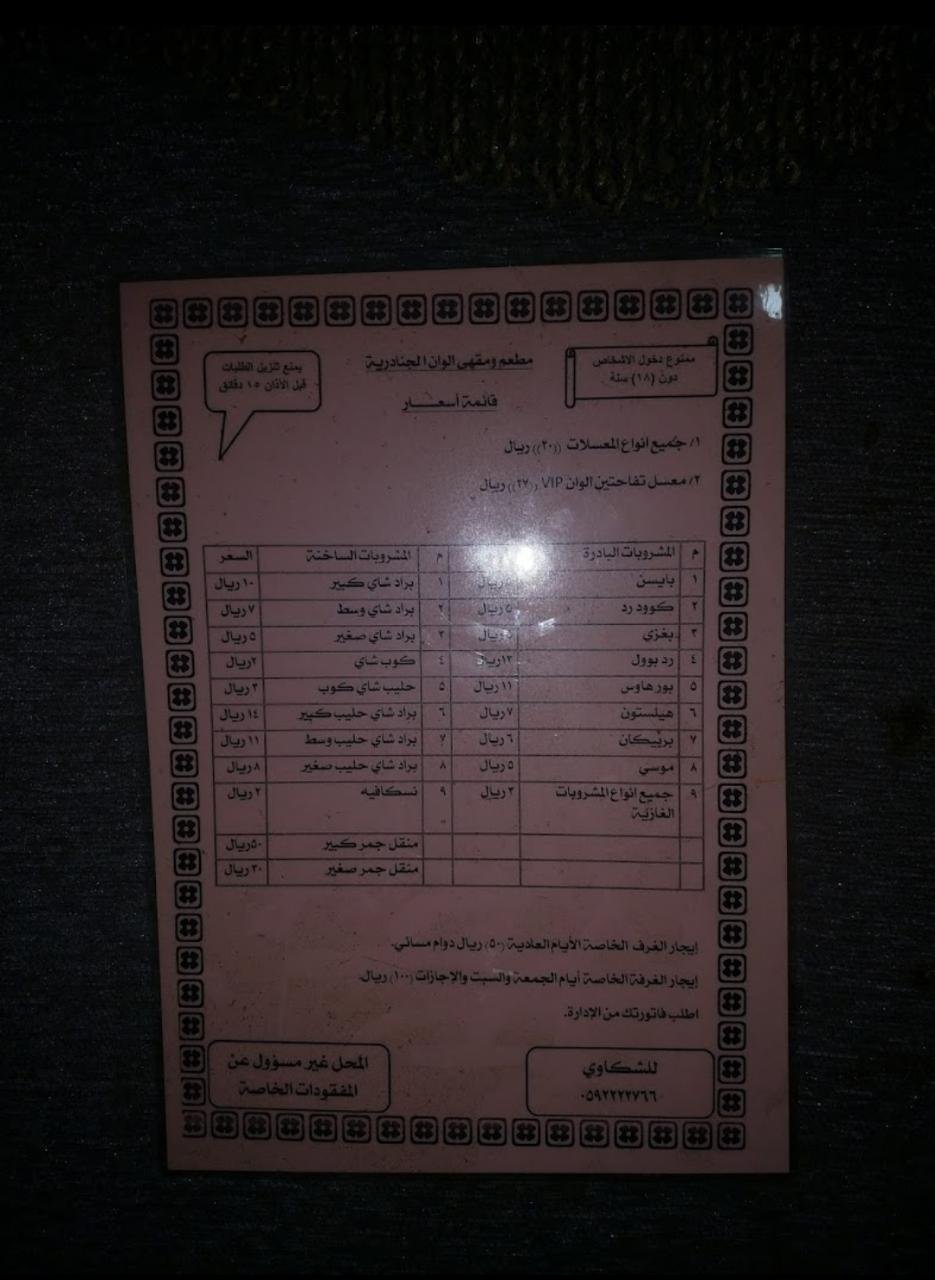 ممنوع دخول الاشخاص
دون (١٨) سنة
مطعم ومقهى الوان الجنادرية
قائمة أسعـــــار
يمنع تنزيل الطلبات
قبل الأذان ١٥ دقائق
١/ جميع انواع المعسلات ((٢٠)) ريال
٢/ معسل تفاحتين الوان VIP ((٢٧)) ريال
م المشروبات البادرة م المشروبات الساخنة السعر
١ بايسن ريال ١ براد شاي كبير ١٠ ريال
٢ كوود رد ٥ ريال ٢ براد شاي وسط ٧ ريال
٣ بغزي ريال ٣ براد شاي صغير ٥ ريال
٤ رد بوول ١٣ ريال ٤ كوب شاي ٢ ريال
٥ بور هاوس ١١ ريال ٥ حليب شاي كوب ٣ ريال
٦ هيلستون ٧ ريال ٦ براد شاي حليب كبير ١٤ ريال
٧ بربيكان ٦ ريال ٧ براد شاي حليب وسط ١١ ريال
٨ موسي ٥ ريال ٨ براد شاي حليب صغير ٨ ريال
٩ جميع انواع المشروبات ٣ ريال ٩ نسكافيه ٢ ريال
الغازية
منقل جمر كبير ٥٠ ريال
منقل جمر صغير ٣٠ ريال
إيجار الغرف الخاصة الأيام العادية (٥٠) ريال دوام مسائي.
إيجار الغرفة الخاصة أيام الجمعة والسبت والإجازات (١٠٠) ريال.
اطلب فاتورتك من الإدارة.
للشكاوي
٠٥٩٢٢٢٢٧٦٦
المحل غير مسؤول عن
المفقودات الخاصة